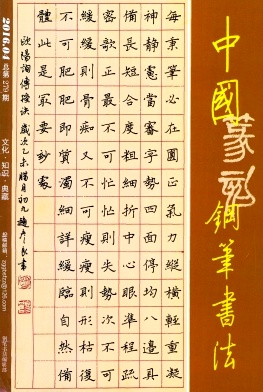 中國篆刻鋼筆書法
每秉筆必在圓正氣力縱橫輕重凝
神靜慮當審字勢四面停均八邊具
備長短合度粗細折中心眼準程疏
密欹正最不可忙忙則失勢次不可
緩緩則骨痴又不可瘦瘦則形枯復
不可肥肥即質濁細詳緩臨自然備
體此是最要妙處
歐陽詢傳授訣 歲次乙未臘月初九
2016.04 总第279期
文化·知识·典藏